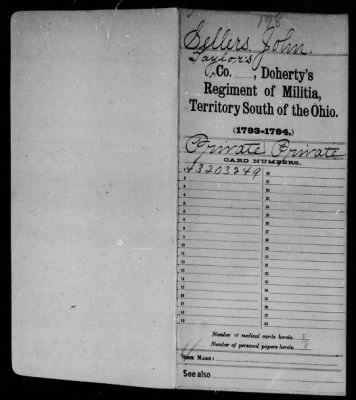 898
Sellers, John.
Taylor's
Co. , Doherty's
Regiment of Militia,
Territory South of the Ohio.
(1793-1794.)
Private Private
CARD NUMBERS.
1 43203249
Number of medical cards herein
Number of personal papers herein
BOOK MARK:
See also